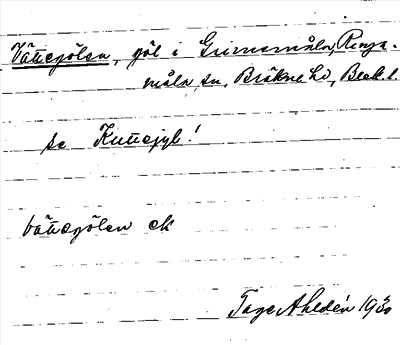 Vättegölen, göl i Grimsmåla, Ringa-
måla sn, Bräkne hd, Blek. l.
se Kuttagyl!
Vättegölen ek
Tage Ahldén 1930